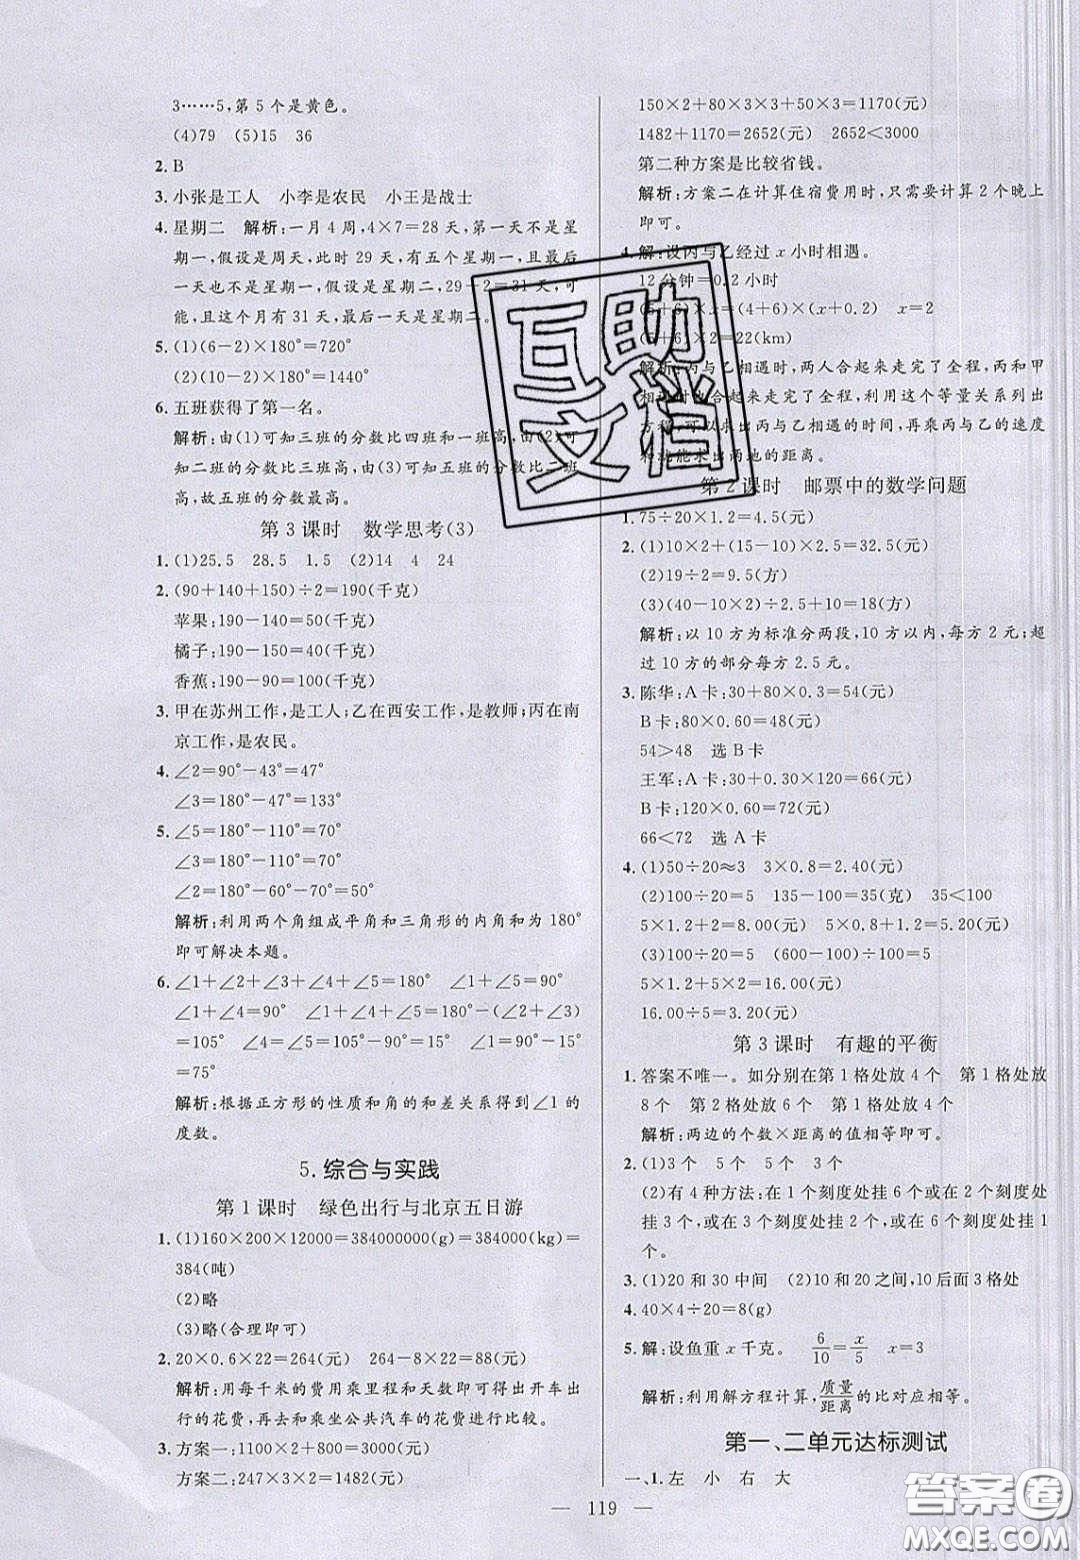 3……5,第5个是黄色。
(4)79 (5)15 36
2. B
3. 小张是工人 小李是农民 小王是战士
4. 星期二 解析:一月4周,4×7=28天,第一天不是星
期一,假设是周天,此时29天,有五个星期一,最后
一天也不是星期一,假设是星期二,29+2=31天,可
能,且这个月有31天,最后一天是星期二。
5. (1)(6-2)×180°=720°
(2)(10-2)×180°=1440°
6. 五班获得了第一名。
解析:由(1)可知三班的分数比四班和一班高,由(2)可
知二班的分数比三班高,由(3)可知五班的分数比二班
高,故五班的分数最高。
第3课时 数学思考(3)
1. (1)25.5 28.5 1.5 (2)14 4 24
2. (90+140+150)÷2=190(千克)
苹果:190-140=50(千克)
橘子:190-150=40(千克)
香蕉:190-90=100(千克)
3. 甲在苏州工作,是工人;乙在西安工作,是教师;丙在南
京工作,是农民。
4. ∠2=90°-43°=47°
∠3=180°-47°=133°
5. ∠5=180°-110°=70°
∠3=180°-110°=70°
∠2=180°-60°-70°=50°
解析:利用两个角组成平角和三角形的内角和为180°
即可解决本题。
6. ∠1+∠2+∠3+∠4+∠5=180° ∠1+∠5=90°
∠1+∠4=90° ∠1+∠4+∠5=180°-(∠2+∠3)
=105° ∠4=∠5=105°-90°=15° ∠1=90°-15°
=75°
解析:根据正方形的性质和角的和差关系得到∠1的
度数。
5. 综合与实践
第1课时 绿色出行与北京五日游
1. (1)160×200×12000=384000000(g)=384000(kg)=
384(吨)
(2)略
(3)略(合理即可)
2. 20×0.6×22=264(元) 264-8×22=88(元)
解析:用每千米的费用乘里程和天数可以得出开车出
行的花费,再去和乘坐公共汽车的花费进行比较。
3. 方案一:1100×2+800=3000(元)
方案二:247×3×2=1482(元)
150×2+80×3×3+50×3=1170(元)
1482+1170=2652(元) 2652<3000
第二种方案是比较省钱。
解析:方案二在计算住宿费用时,只需要计算2个晚上
即可。
4. 解:设丙与乙经过x小时相遇。
12分钟=0.2小时
(5+6)×x=(4+6)×(x+0.2) x=2
(5+6)×2=22(km)
解析:丙与乙相遇时,两人合起来走完了全程,丙和甲
时也合起来走完了全程,利用这个等量关系列出
方程,可以求出丙与乙相遇的时间,再乘丙与乙的速度
和就能求出两地的距离。
第2课时 邮票中的数学问题
1. 75÷20×1.2=4.5(元)
2. (1)10×2+(15-10)×2.5=32.5(元)
(2)19÷2=9.5(方)
(3)(40-10×2)÷2.5+10=18(方)
解析:以10方为标准分两段,10方以内,每方2元;超
过10方的部分每方2.5元。
3. 陈华:A卡:30+80×0.3=54(元)
B卡:80×0.60=48(元)
54>48 选B卡
王军:A卡:30+0.30×120=66(元)
B卡:120×0.60=72(元)
66<72 选A卡
4. (1)50÷20≈3 3×0.8=2.40(元)
(2)100÷20=5 135-100=35(克) 35<100
5×1.2+2=8.00(元) 5×0.8+1.2=5.20(元)
(3)100÷20=5 (600-100)÷100=5
5×1.2+5×2=16.00(元)
16.00÷5=3.20(元)
第3课时 有趣的平衡
1. 答案不唯一。如分别在第1格处放4个 第1格处放
8个 第2格处放6个 第1格处放4个
解析:两边的个数×距离的值相等即可。
2. (1)3个 5个 3个 2个
(2)有4种方法:在1个刻度处挂6个,或在2个刻度处
挂3个,或在3个刻度处挂2个,或在6个刻度处挂1
个。
3. (1)20和30中间 (2)10和20之间,10后面3格处
4. 40×4÷20=8(g)
5. 解:设鱼重x千克。 6/10=x/5 x=3
解析:利用解方程计算,质量/距离的比对应相等。
第一、二单元达标测试
一、1. 左 小 右 大
119
互助
文档
答案卷
MXQE.COM